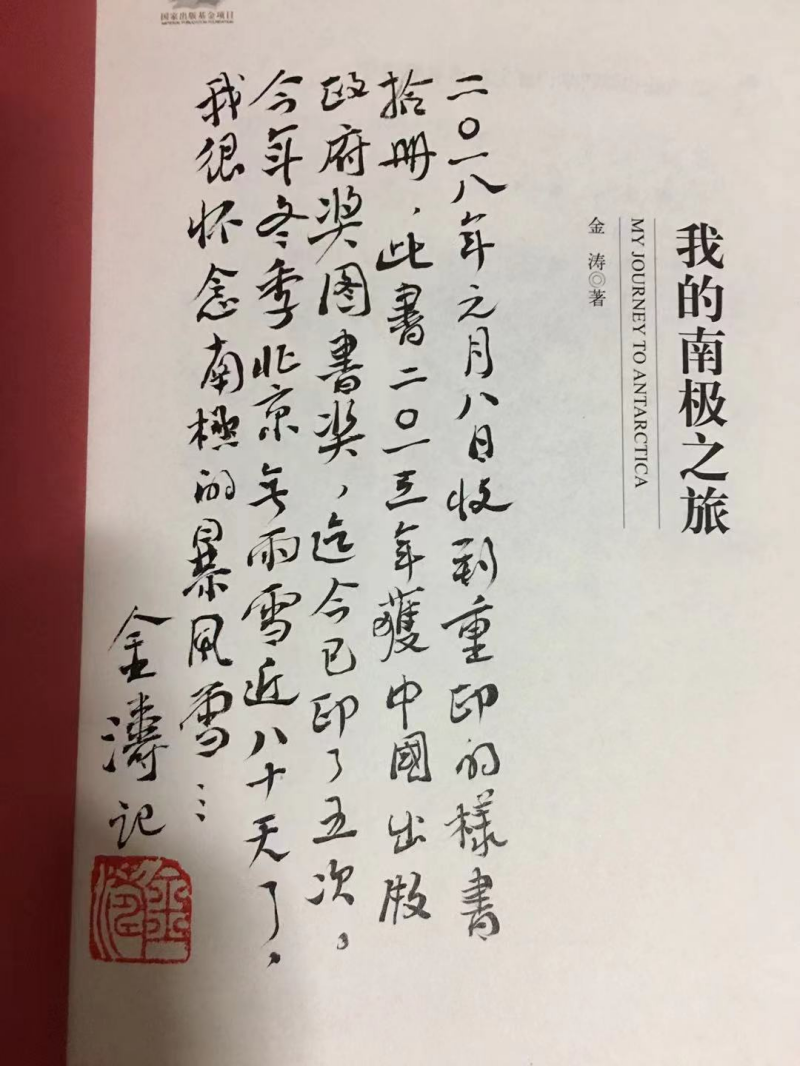 国家出版基金项目
NATIONAL PUBLICATION FOUNDATION
我的南极之旅
MY JOURNEY TO ANTARCTICA
金 涛◎著
二〇一八年元月八日收到重印的樣書
拾册，此書二〇一三年獲中國出版
政府奖图書奖，迄今已印了五次，
今年冬季北京无雨雪近八十天了，
我很怀念南極的暴风雪……
金濤记
金涛